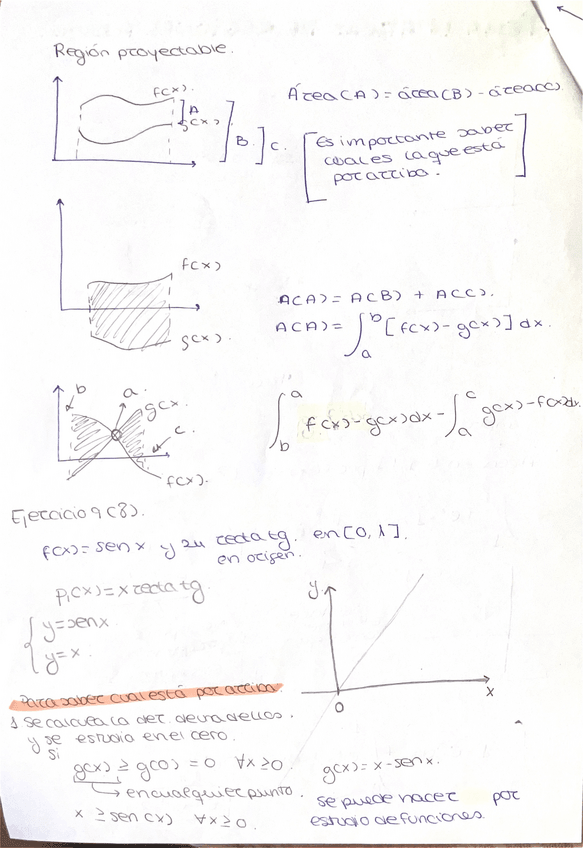 Región proyectable.
f(x).
A
g(x)
B.
C.
Área(A) = área(B) - área(C)
Es importante saber
cual es la que está
por arriba.
f(x)
g(x).
A(A) = A(B) + A(C).
A(A) = ∫_a^b [f(x) - g(x)] dx.
b
a.
g(x
c.
f(x).
∫_b^a f(x) - g(x) dx - ∫_a^c g(x) - f(x) dx.
Ejercicio 9(8).
f(x) = sen x y su recta tg. en [0, 1].
en origen.
p₁(x) = x recta tg.
y = sen x.
y = x.
y
x
0
Para saber cual está por arriba.
1 se calcula la der. de una de llos.
y se estudio en el cero.
si
g(x) ≥ g(0) = 0 ∀x ≥ 0.
g(x) = x - sen x.
en cualquier punto.
x ≥ sen(x) ∀x ≥ 0.
se puede hacer por
estudio de funciones.